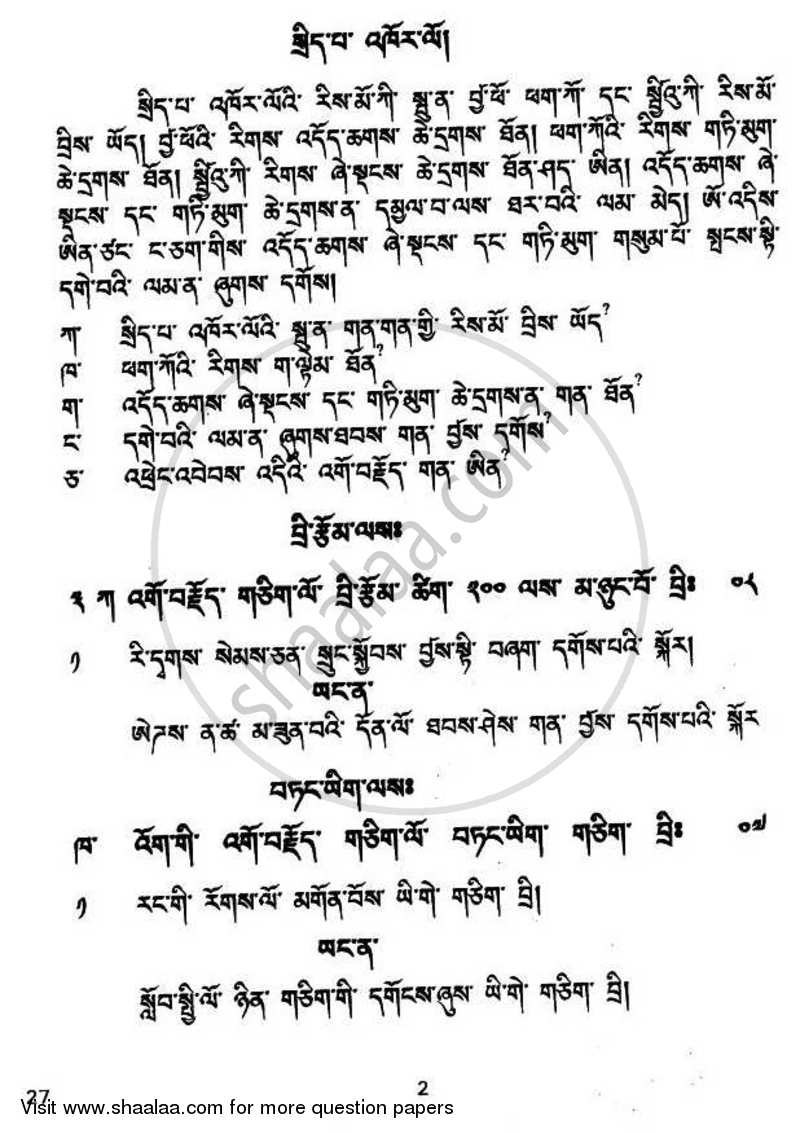 སྲིད་པ་ འཁོར་ལོ།
སྲིད་པ་ འཁོར་ལོའི་ རིས་མོ་ཀི་ སྦུ་ན་ བྱ་ཕོ་ ཕག་ཀོ་ དང་ སྦྲིའུ་ཀི་ རིས་མོ་
བྲིས་ ཡོད། བྱ་ཕོའི་ རིགས་ འདོད་ཆགས་ ཚེ་དྲགས་ ཐོན། ཕག་ཀོའི་ རིགས་ གཏི་མུག་
ཚེ་དྲགས་ ཐོན། སྦྲིའུ་ཀི་ རིགས་ ཞེ་སྡངས་ ཚེ་དྲགས་ ཐོན་ཤད་ ཨིན། འདོད་ཆགས་ ཞེ་
སྡངས་ དང་ གཏི་མུག་ ཚེ་དྲགས་ན་ དམྱལ་བ་ལས་ ཐར་བའི་ ལམ་ མེད། ཨོ་འདིས་
ཨིན་ཙང་ ང་ཅག་གིས་ འདོད་ཆགས་ ཞེ་སྡངས་ དང་ གཏི་མུག་ གསུམ་པོ་ སྤངས་སྟི་
དགེ་བའི་ ལམ་ན་ ཞུགས་ དགོས།
ཀ་ སྲིད་པ་ འཁོར་ལོའི་ སྦུ་ན་ གན་གན་གྱི་ རིས་མོ་ བྲིས་ ཡོད?
ཁ་ ཕག་ཀོའི་ རིགས་ ག་ལྟེམ་ ཐོན?
ག་ འདོད་ཆགས་ ཞེ་སྡངས་ དང་ གཏི་མུག་ ཚེ་དྲགས་ན་ གན་ ཐོན?
ང་ དགེ་བའི་ ལམ་ན་ ཞུགས་ཐབས་ གན་ བྱོས་ དགོས?
ཅ་ འཕྲེང་འབེབས་ འདིའི་ འགོ་བརྗོད་ གན་ ཨིན?
བྲི་རྩོམ་ལསཿ
༢ ཀ འགོ་བརྗོད་ གཅིག་ལོ་ བྲི་རྩོམ་ ཚིག་ ༢༠༠ ལས་ མ་ཉུང་བོ་ བྲིཿ ༠༨
༡ རི་དྭགས་ སེམས་ཅན་ སྲུང་སྐྱོབས་ བྱོས་སྟི་ བཞག་ དགོས་པའི་ སྐོར།
ཡང་ན་
ཨེཌས་ ན་ཚ་ མ་ཟུན་བའི་ དོན་ལོ་ ཐབས་ཤེས་ གན་ བྱོས་ དགོས་པའི་ སྐོར
བཏང་ཡིག་ལསཿ
ཁ་ འོག་གི་ འགོ་བརྗོད་ གཅིག་ལོ་ བཏང་ཡིག་ གཅིག་ བྲིཿ ༠༧
༡ རང་གི་ རོགས་ལོ་ མགོན་བོས་ ཡི་གེ་ གཅིག་ བྲི།
ཡང་ན་
སློབ་སྤྱི་ལོ་ ཉིན་ གཅིག་གི་ དགོངས་ཞུས་ ཡི་གེ་ གཅིག་ བྲི།
shaalaa.com
27
2
Visit www.shaalaa.com for more question papers